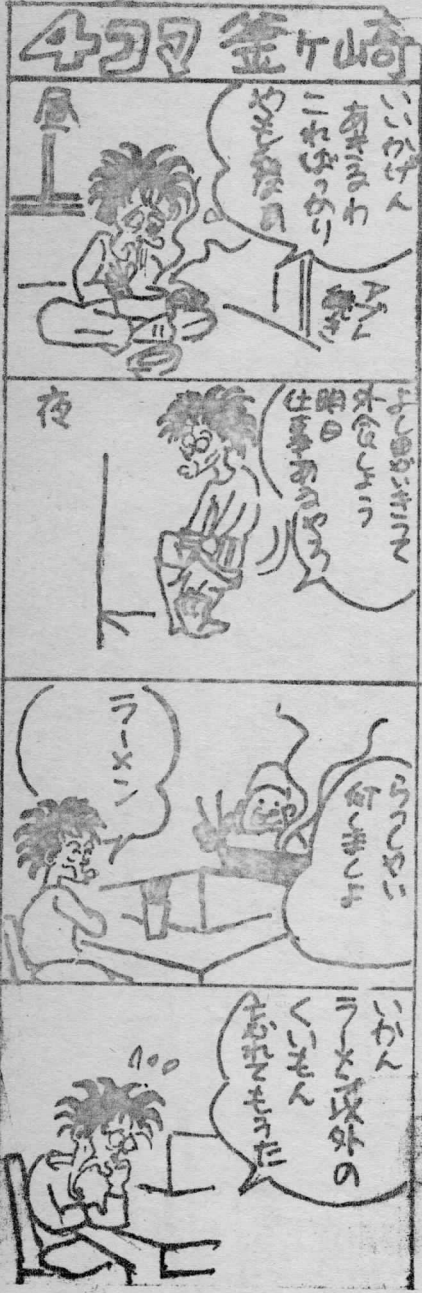 4コマ 釜ヶ崎
いいかげん
あきるわ
こればっかり
やもんなぁ
昼
よし思いきって
外食しよう
明日
仕事あるやろ
夜
らっしゃい
何しましょ
ラーメン
いかん
ラーメン以外の
くいもん
忘れてもうた